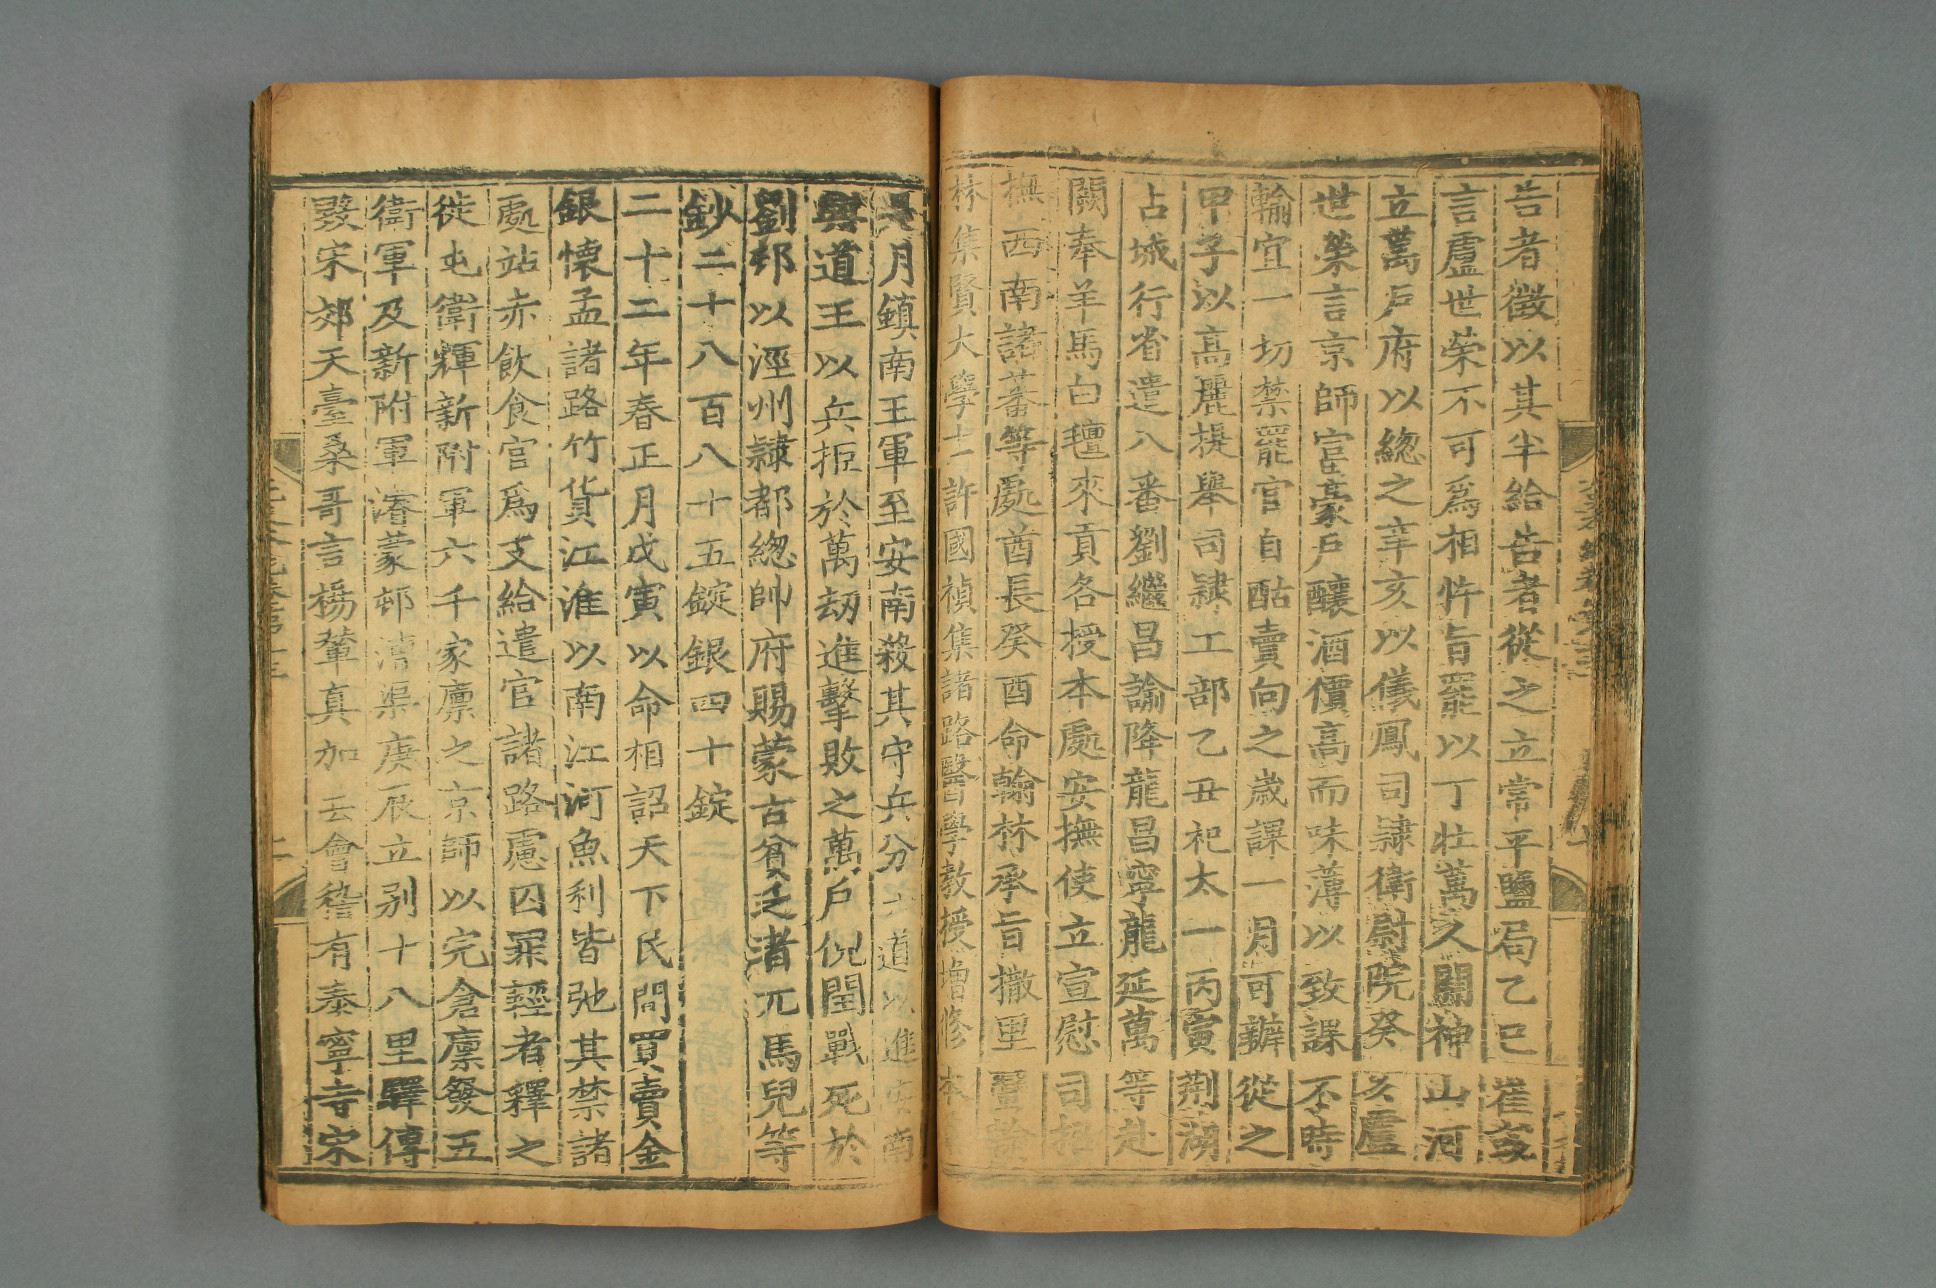 告者徵以其半給告者從之立常平鹽局乙巳崔彧
言盧世榮不可爲相忤旨罷以丁壯萬人開神山河
立萬戶府以總之辛亥以儀鳳司隸衛尉院癸亥盧
世榮言京師富豪戶釀酒價高而味薄以致課不時
輸宜一切禁罷官自酤賣向之歲課一月可辦從之
甲子以高麗提舉司隸工部乙丑祀太一丙寅荆湖
占城行省遣八番劉繼昌諭降龍昌寧龍延萬等赴
闕奉羊馬白氊來貢各授本處安撫使立宣慰司招
撫西南諸蕃等處酋長癸酉命翰林承旨撒里蠻翰
林集賢大學士許國禎集諸路醫學教授增修本
月鎮南王軍至安南殺其守兵分六道以進安南
興道王以兵拒於萬劫進擊敗之萬戶倪閏戰死於
劉邨以涇州隸都總帥府賜蒙古貧乏者兀馬兒等
鈔二十八百八十五錠銀四十錠
二十二年春正月戊寅以命相詔天下民間買賣金
銀懷孟諸路竹貨江淮以南江河魚利皆弛其禁諸
處站赤飲食官爲支給遣官諸路慮囚罪輕者釋之
徙屯衛輝新附軍六千家廩之京師以完倉廩發五
衛軍及新附軍濬蒙邨漕渠庚辰立别十八里驛傳
毀宋郊天臺桑哥言楊輦真加云會稽有泰寧寺宋